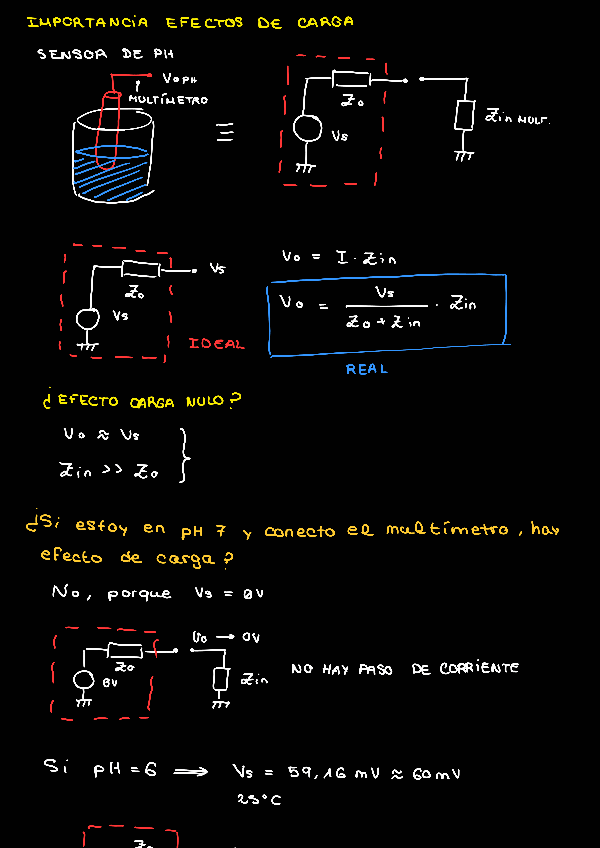 IMPORTANCIA EFECTOS DE CARGA
SENSOR DE PH
VOPH
MULTÍMETRO
Zo
Vs
Zin MULT.
≡
Zo
Vs
Vs
IDEAL
Vo = I · Zin
Vo = Vs / Zo + Zin · Zin
REAL
¿EFECTO CARGA NULO?
Vo ≈ Vs
Zin >> Zo
¿Si estoy en pH 7 y conecto el multímetro, hay
efecto de carga?
No, porque Vs = 0V
Vo → 0V
Zo
0V
Zin
NO HAY PASO DE CORRIENTE
Si pH = 6 ⟹ Vs = 59,16 mV ≈ 60mV
25°C
Zo